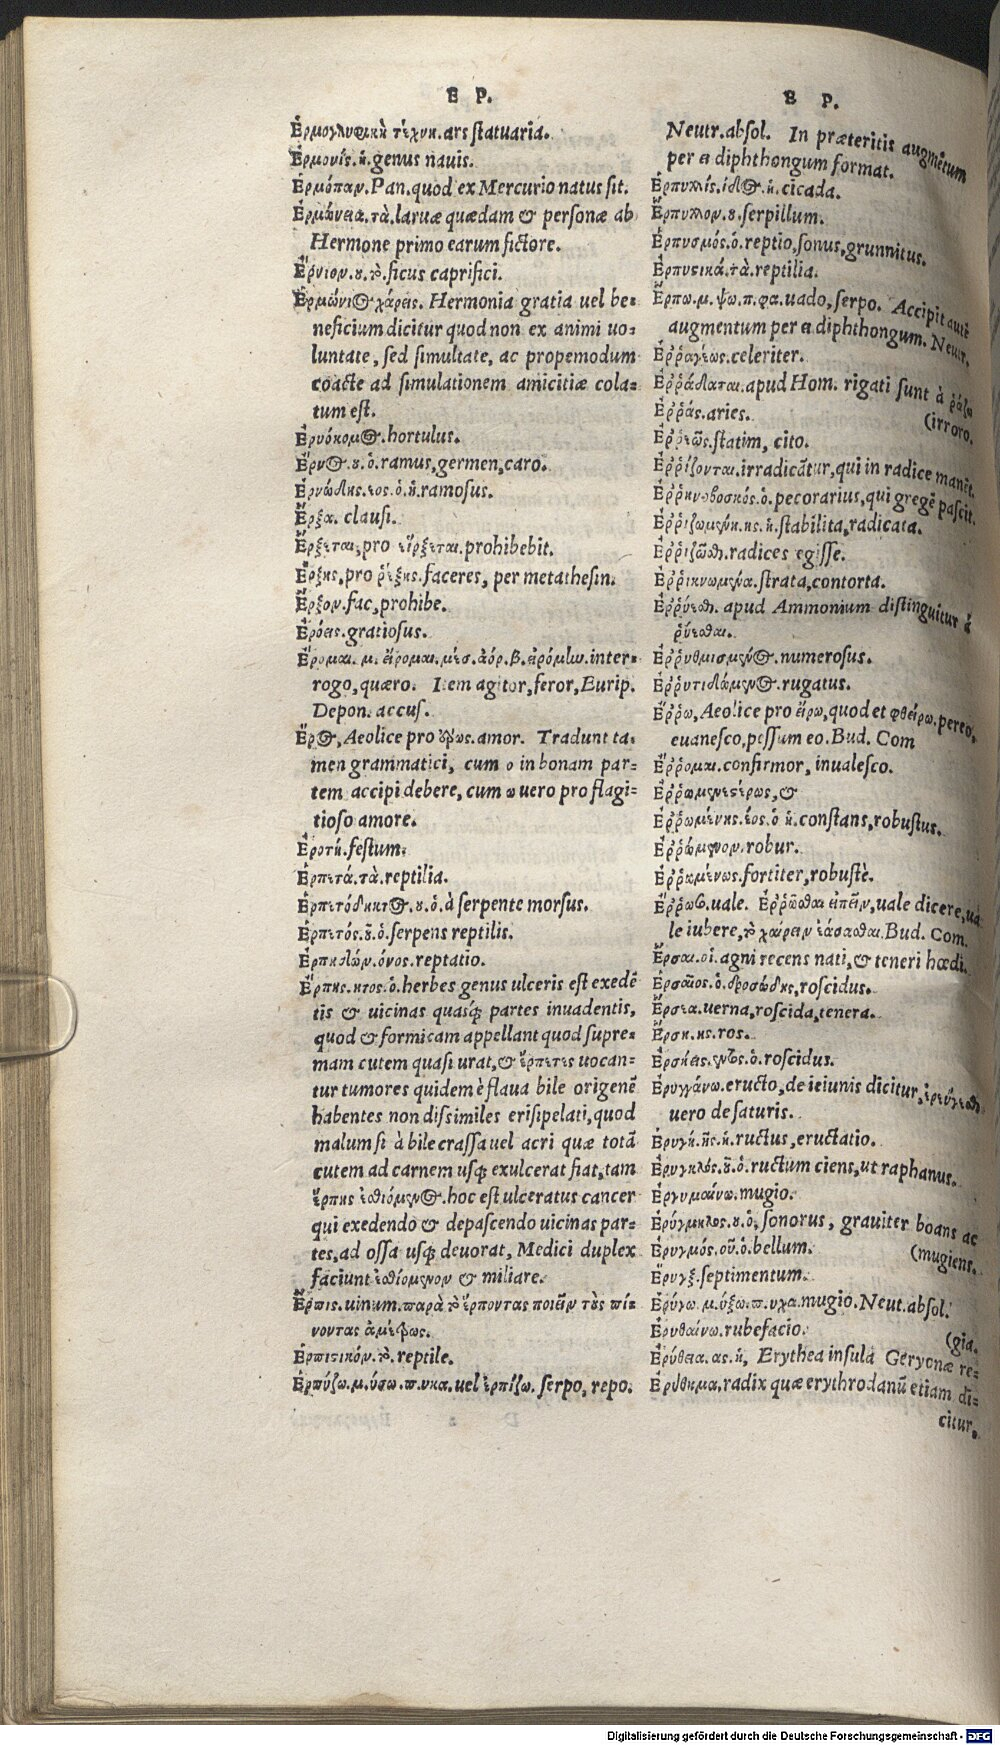 E P.
Ἑρμογλυφικὴ τέχνη. ars statuaria.
Ἑρμονίς. ἡ. genus nauis.
Ἑρμόπαν. Pan. quod ex Mercurio natus sit.
Ἑρμώνεια. τὰ. laruæ quædam & personæ ab
Hermone primo earum fictore.
Ἔρνιον. ου. τὸ. ficus caprifici.
Ἑρμώνιος χάρις. Hermonia gratia uel be=
neficium dicitur quod non ex animi uo=
luntate, sed simultate, ac propemodum
coacte ad simulationem amicitiæ cola=
tum est.
Ἐρνόκομος. hortulus.
Ἔρνος. ου. ὁ. ramus, germen, caro.
Ἐρνώδης. εος. ὁ. ἡ. ramosus.
Ἔρξα. clausi.
Ἔρξεται, pro εἵρξεται. prohibebit.
Ἔρξης, pro ῥέξης. faceres, per metathesin.
Ἔρξον. fac, prohibe.
Ἐρόεις. gratiosus.
Ἔρομαι. μ. εἴρομαι. μέσ. ἀόρ. β. εἰρόμην. inter=
rogo, quæro. Item agitor, feror, Eurip.
Depon. accus.
Ἔρος, Aeolice pro ἔρως. amor. Tradunt ta=
men grammatici, cum ο in bonam par=
tem accipi debere, cum ω uero pro flagi=
tioso amore.
Ἐροτή. festum.
Ἑρπετά. τὰ. reptilia.
Ἑρπετόδηκτος. ου. ὁ. à serpente morsus.
Ἑρπετός. οῦ. ὁ. serpens reptilis.
Ἑρπηδών. όνος. reptatio.
Ἕρπης. ητος. ὁ. herbes genus ulceris est exedẽ
tis & uicinas quasq; partes inuadentis,
quod & formicam appellant quod supre=
mam cutem quasi urat, & ἕρπετες uocan=
tur tumores quidem è flaua bile originẽ
habentes non dissimiles erisipelati, quod
malum si à bile crassa uel acri quæ totã
cutem ad carnem usq; exulcerat fiat, tam
ἕρπης ἐσθιόμενος. hoc est ulceratus cancer
qui exedendo & depascendo uicinas par=
tes, ad ossa usq; deuorat, Medici duplex
faciunt ἐσθίομενον & miliare.
Ἕρπις. uinum. παρὰ τὸ ἕρποντας ποιεῖν τοὺς πί=
νοντας ἀμέτρως.
Ἑρπιστικόν. τὸ. reptile.
Ἑρπύζω. μ. ύσω. π. υκα. uel ἑρπίζω. serpo, repo.
E P.
Neutr. absol. In præteritis augmẽtum
per ει diphthongum format.
Ἑρπυλλίς. ίδος. ἡ. cicada.
Ἕρπυλλον. ου. serpillum.
Ἑρπυσμός. ὁ. reptio, sonus, grunnitus.
Ἑρπυστικά. τὰ. reptilia.
Ἕρπω. μ. ψω. π. φα. uado, serpo. Accipit autẽ
augmentum per ει diphthongum. Neutr.
Ἐῤῥαγέως. celeriter.
Ἐῤῥάδαται. apud Hom. rigati sunt à ῥάζω
(irroro.
Ἐῤῥάς. aries.
Ἐῤῥεῶς. statim, cito.
Ἐῤῥίζονται. irradicãtur, qui in radice manẽt.
Ἐῤῥηνοβοσκός. ὁ. pecorarius, qui gregẽ pascit.
Ἐῤῥιζωμένη. ης. ἡ. stabilita, radicata.
Ἐῤῥιζῶσθι. radices egisse.
Ἐῤῥικνωμένα. strata, contorta.
Ἐῤῥύεσθαι. apud Ammonium distinguitur à
ῥύεσθαι.
Ἐῤῥυθμισμένος. numerosus.
Ἐῤῥυτιδώμενος. rugatus.
Ἔῤῥω, Aeolice pro ἔιρω, quod et φθείρω. pereo,
euanesco, pessum eo. Bud. Com
Ἔῤῥομαι. confirmor, inualesco.
Ἐῤῥωμενεστέρως, &
Ἐῤῥωμένης. έος. ὁ ἡ. constans, robustus.
Ἐῤῥώμενον. robur.
Ἐῤῥωμένως. fortiter, robustè.
Ἔῤῥωσο. uale. Ἐῤῥῶσθαι εἰπεῖν, uale dicere, ua
le iubere, τὸ χαίρειν ἐάσασθαι. Bud. Com.
Ἔρσαι. οἱ. agni recens nati, & teneri hœdi.
Ἐρσαῖος. ὁ. δροσώδης, roscidus.
Ἔρσεα. uerna, roscida, tenera.
Ἔρση. ης. ros.
Ἐρσήεις. εντος. ὁ. roscidus.
Ἐρυγγάνω. eructo, de ieiunis dicitur, ἐρεύγεσθαι
uero de saturis.
Ἐρυγή. ῆς. ἡ. ructus, eructatio.
Ἐρυγηλός. οῦ. ὁ. ructum ciens, ut raphanus.
Ἐρυγμαίνω. mugio.
Ἐρύγμηλος. ου. ὁ, sonorus, grauiter boans ac
(mugiens.
Ἐρυγμός. οῦ. ὁ. bellum.
Ἔρυγξ. septimentum.
Ἐρύγω. μ. ύξω. π. υχα. mugio. Neut. absol.
Ἐρυθαίνω. rubefacio.
(gia.
Ἐρύθεια. ας. ἡ, Erythea insula Geryonæ re=
Ἐρύθημα. radix quæ erythrodanũ etiam di=
citur.
Digitalisierung gefördert durch die Deutsche Forschungsgemeinschaft - DFG